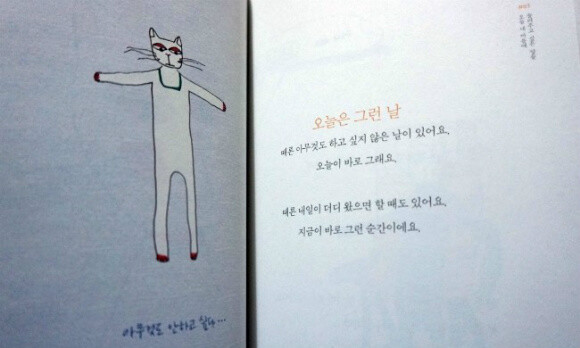 아무것도 안하고 싶다...
오늘은 그런 날
때론 아무것도 하고 싶지 않은 날이 있어요.
오늘이 바로 그래요.
때론 내일이 더디 왔으면 할 때도 있어요.
지금이 바로 그런 순간이에요.